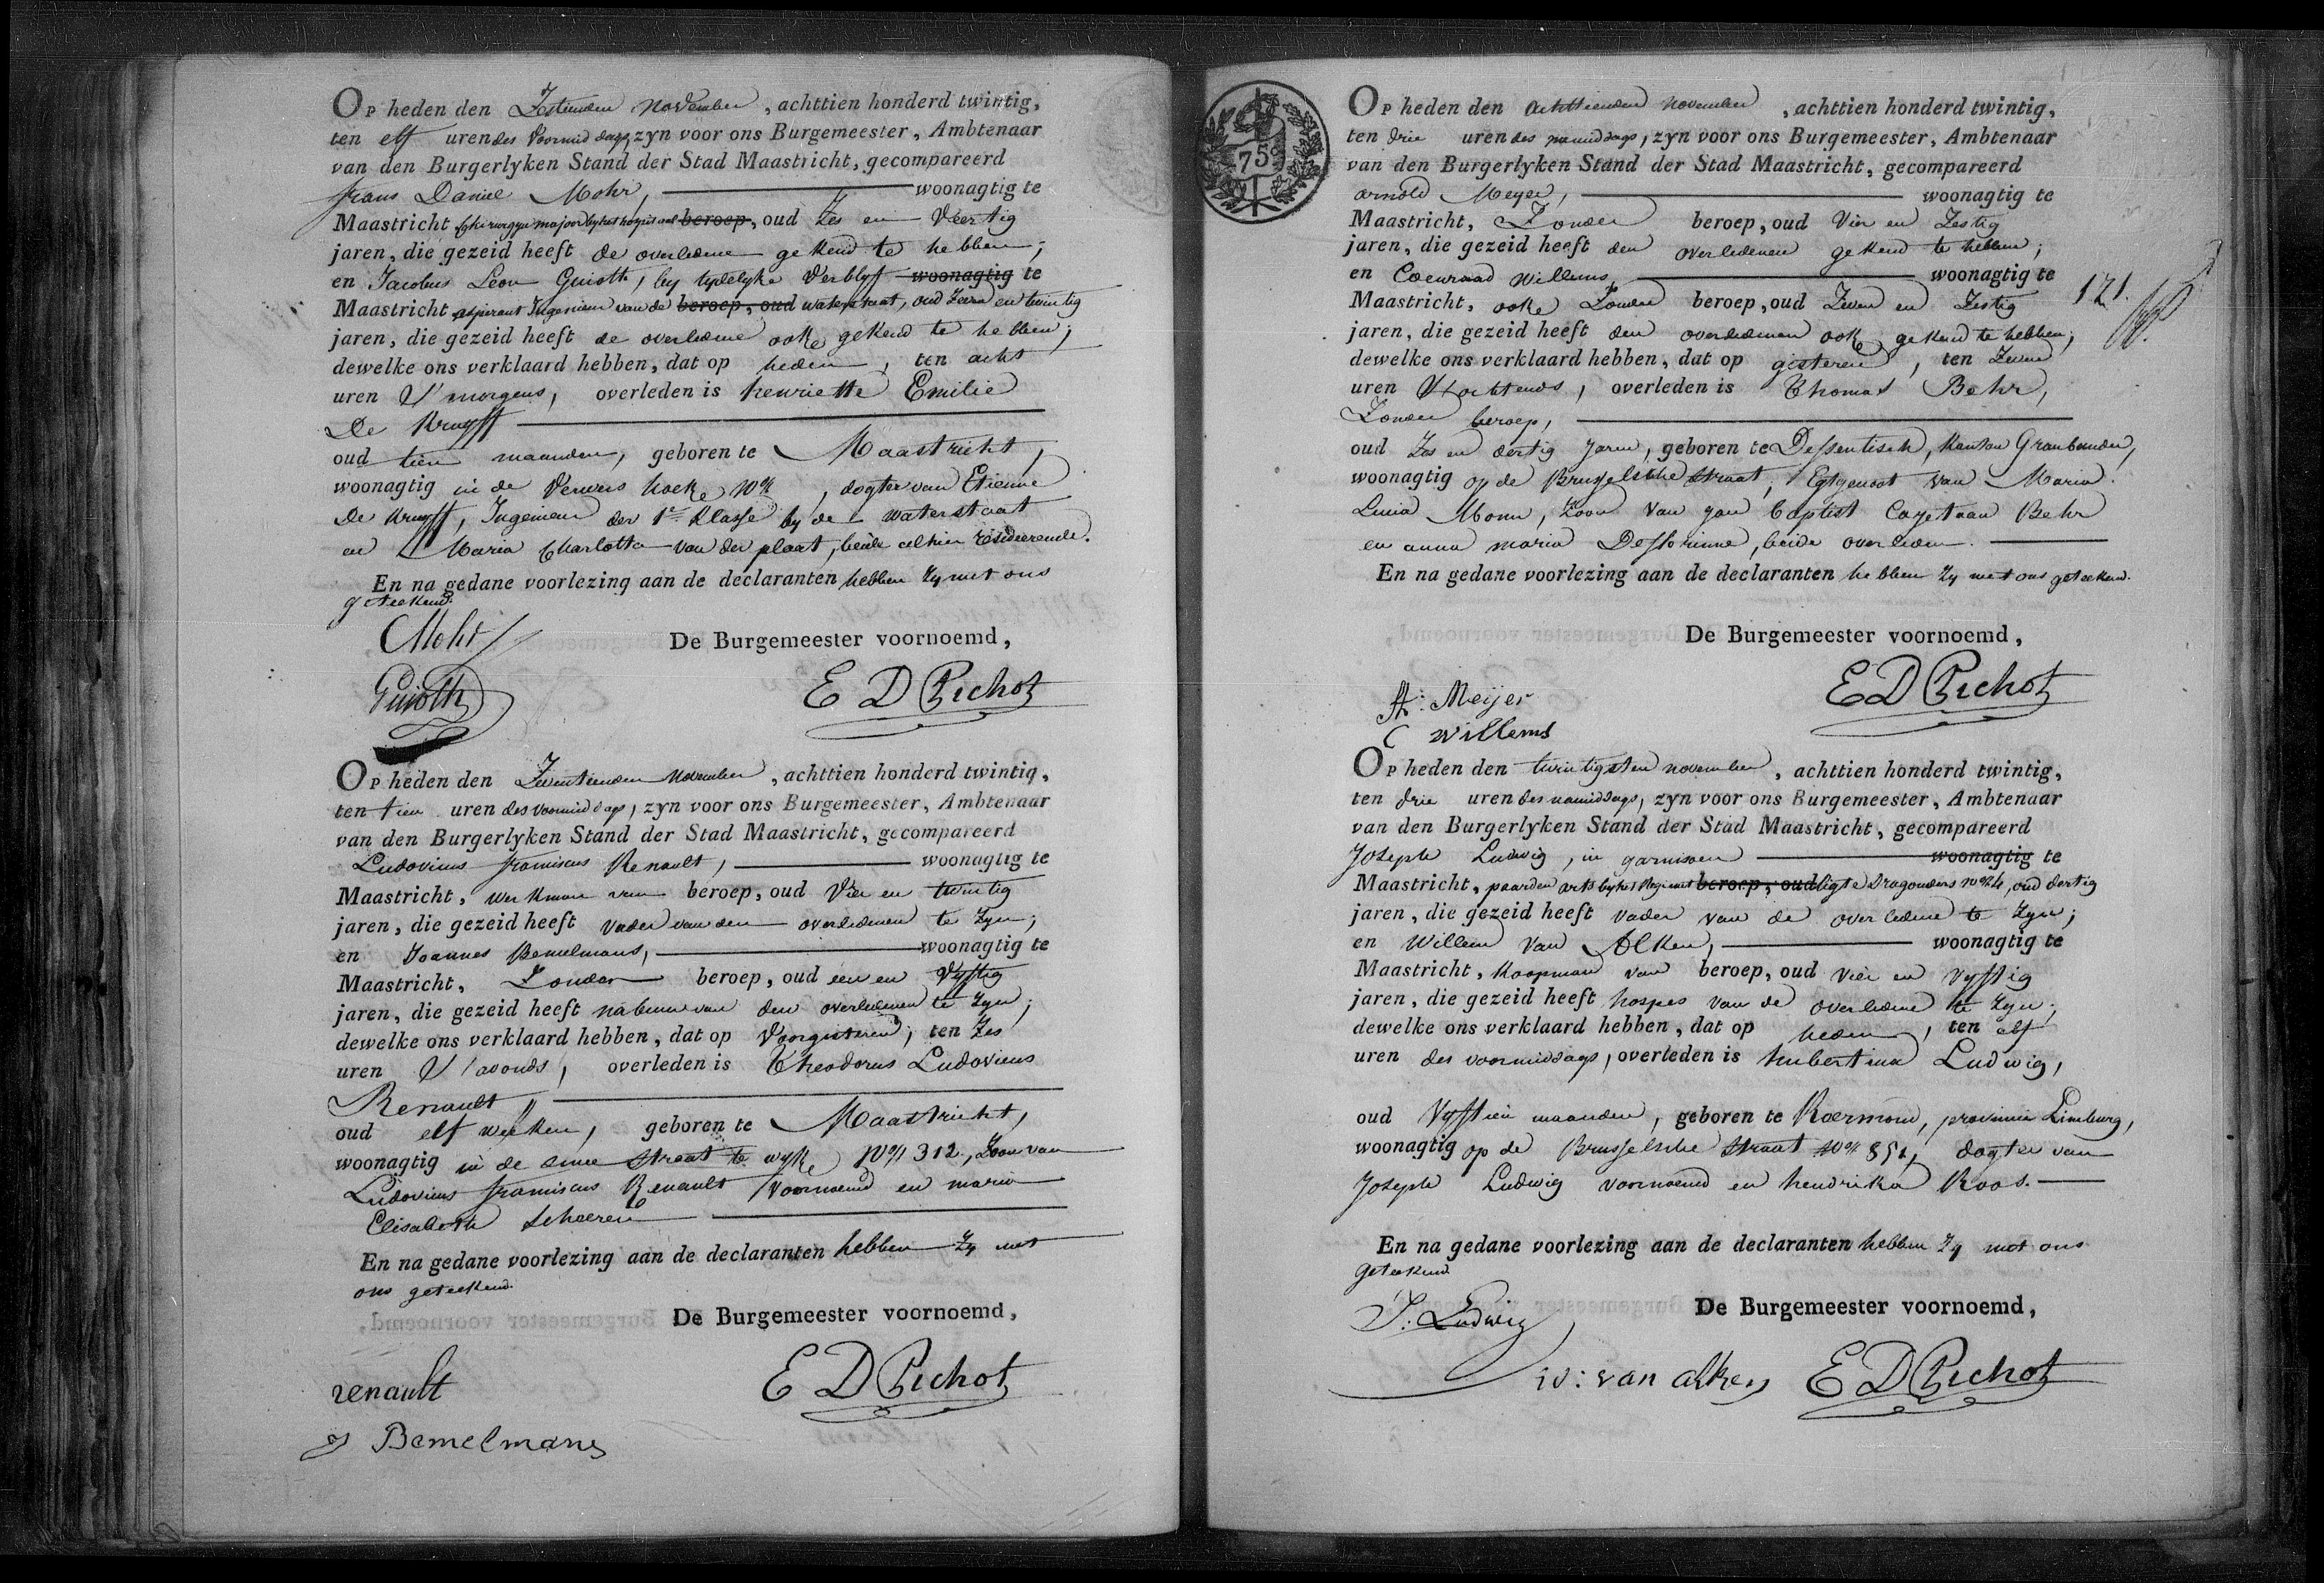 Op heden den Zestienden november, achttien honderd twintig,
ten elf uren des Voormiddags, zyn voor ons Burgemeester, Ambtenaar
van den Burgerlyken Stand der Stad Maastricht, gecompareerd
frans Daniel Mohr, woonagtig te
Maastricht Chirurgyn major by het hospitaal beroep, oud Zes en Veertig
jaren, die gezeid heeft de overledene gekend te hebben;
en Jacobus Leon Guioth, by tydelyke Verblyf woonagtig te
Maastricht aspirant Ingenieur van de beroep, oud waterstaat, oud Zeven en twintig
jaren, die gezeid heeft de overledene ook gekend te hebben;
dewelke ons verklaard hebben, dat op heden, ten acht
uren S'morgens, overleden is henriette Emilie
De Kruyff
oud tien maanden, geboren te Maastricht,
woonagtig in de Verwers hoek N°, dogter van Etienne
De Kruyff, Ingenieur der 1e Klasse by de waterstaat
en Maria Charlotta van der plaat, beide alhier resideerende.
En na gedane voorlezing aan de declaranten hebben Zy met ons
geteekend.
Mohr
De Burgemeester voornoemd,
Guioth
E D Pichot
Op heden den Zeventienden november, achttien honderd twintig,
ten tien uren des voormiddags, zyn voor ons Burgemeester, Ambtenaar
van den Burgerlyken Stand der Stad Maastricht, gecompareerd
Ludovicus franciscus Renault, woonagtig te
Maastricht, werkman van beroep, oud Vier en twintig
jaren, die gezeid heeft vader van den overledenen te Zyn;
en Joannes Bemelmans, woonagtig te
Maastricht, Zonder beroep, oud een en Vyftig
jaren, die gezeid heeft nabuur van den overledenen te Zyn;
dewelke ons verklaard hebben, dat op Voorgisteren, ten Zes
uren S'avonds, overleden is Theodorus Ludovicus
Renault,
oud elf weeken, geboren te Maastricht,
woonagtig in de straat te wyke N° 312, Zoon van
Ludovicus franciscus Renault voornoemd en maria
Elisabeth Scheeren
En na gedane voorlezing aan de declaranten hebben Zy met
ons geteekend.
De Burgemeester voornoemd,
renault
E D Pichot
J Bemelmans
75
Op heden den achttienden november, achttien honderd twintig,
ten drie uren des namiddags, zyn voor ons Burgemeester, Ambtenaar
van den Burgerlyken Stand der Stad Maastricht, gecompareerd
arnold Meyer, woonagtig te
Maastricht, Zonder beroep, oud Vier en Zestig
jaren, die gezeid heeft den overledenen gekend te hebben;
en Coenraad Willems woonagtig te
Maastricht, ook Zonder beroep, oud Zeven en Zestig
121.
jaren, die gezeid heeft den overledenen ook gekend te hebben;
dewelke ons verklaard hebben, dat op gisteren, ten Zeven
uren S'ochtends, overleden is Thomas Behr,
Zonder beroep,
oud Zes en dertig Jaren, geboren te Dessentisch, Kanton Graubunden,
woonagtig op de Brusselsche Straat, Egtgenoot van Maria
Lucia Monn, Zoon van Jan Baptist Cajetaan Behr
en anna maria Desflorinne, beide overleden.
En na gedane voorlezing aan de declaranten hebben Zy met ons geteekend.
De Burgemeester voornoemd,
A: Meijer
E D Pichot
C willems
Op heden den twintigsten november, achttien honderd twintig,
ten drie uren des namiddags, zyn voor ons Burgemeester, Ambtenaar
van den Burgerlyken Stand der Stad Maastricht, gecompareerd
Joseph Ludwig, in garnisoen woonagtig te
Maastricht, paarden arts by het Regiment beroep, oud ligte Dragonders N° 4, oud dertig
jaren, die gezeid heeft vader van de overledene te Zyn;
en Willem Van Alken, woonagtig te
Maastricht, Koopman van beroep, oud vier en vyftig
jaren, die gezeid heeft hospes van de overledene te Zyn;
dewelke ons verklaard hebben, dat op heden, ten elf
uren des voormiddags, overleden is hubertina Ludwig,
oud Vyftien maanden, geboren te Roermond, provincie Limburg,
woonagtig op de Brusselsche Straat N° 851, dogter van
Joseph Ludwig voornoemd en hendrika Roos.
En na gedane voorlezing aan de declaranten hebben Zy met ons
geteekend.
De Burgemeester voornoemd,
J. Ludwig
w: van alken
E D Pichot